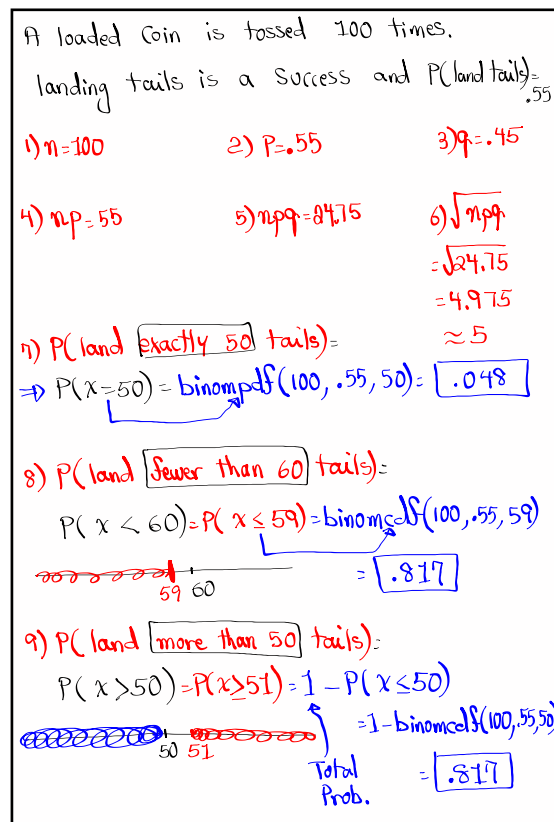 A loaded coin is tossed 100 times.
landing tails is a success and P(land tails)=
.55
1) n=100 2) P=.55 3) q=.45
4) np=55 5) npq=24.75 6) √npq
=√24.75
=4.975
≈5
7) P(land exactly 50 tails)=
⇒ P(x=50)=binompdf(100,.55,50)= .048
8) P(land fewer than 60 tails)=
P(x<60)=P(x≤59)=binomcdf(100,.55,59)
= .817
59 60
9) P(land more than 50 tails)=
P(x>50)=P(x≥51)=1-P(x≤50)
=1-binomcdf(100,.55,50)
50 51
Total
Prob.
= .817